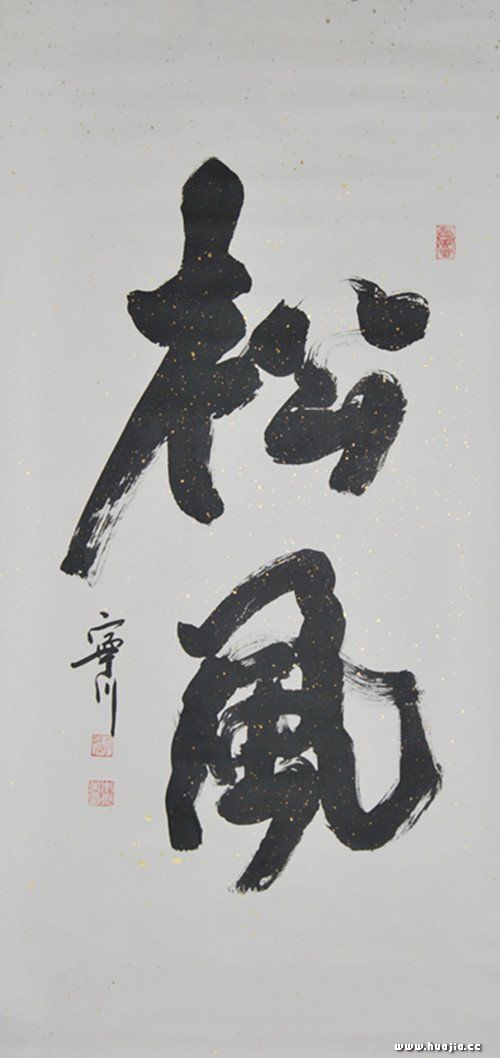 松風
寧川
www.huajia.cc